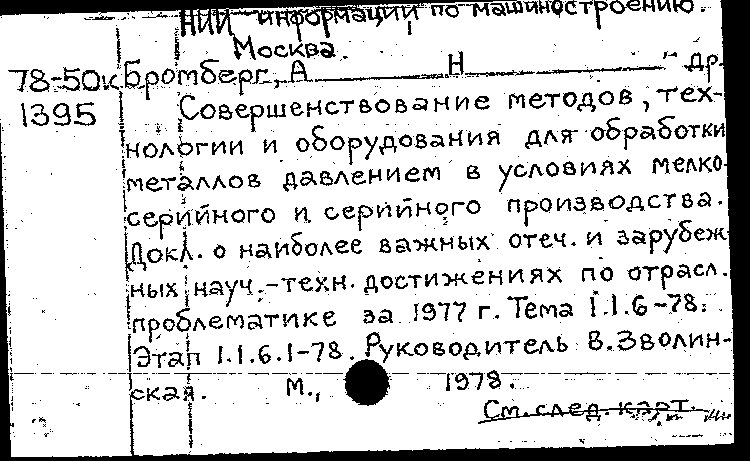 НИИ информации по машиностроению.
Москва.
78-50к Бромберг, А Н и др.
1395 Совершенствование методов, тех-
нологии и оборудования для обработки
металлов давлением в условиях мелко-
серийного и серийного производства.
Докл. о наиболее важных отеч. и зарубеж
ных науч.-техн. достижениях по отрасл.
проблематике за 1977 г. Тема 1.1.6-78.
Этап 1.1.6.1-78. Руководитель В.Зволин-
ская. М., 1978.
См. след. карт.